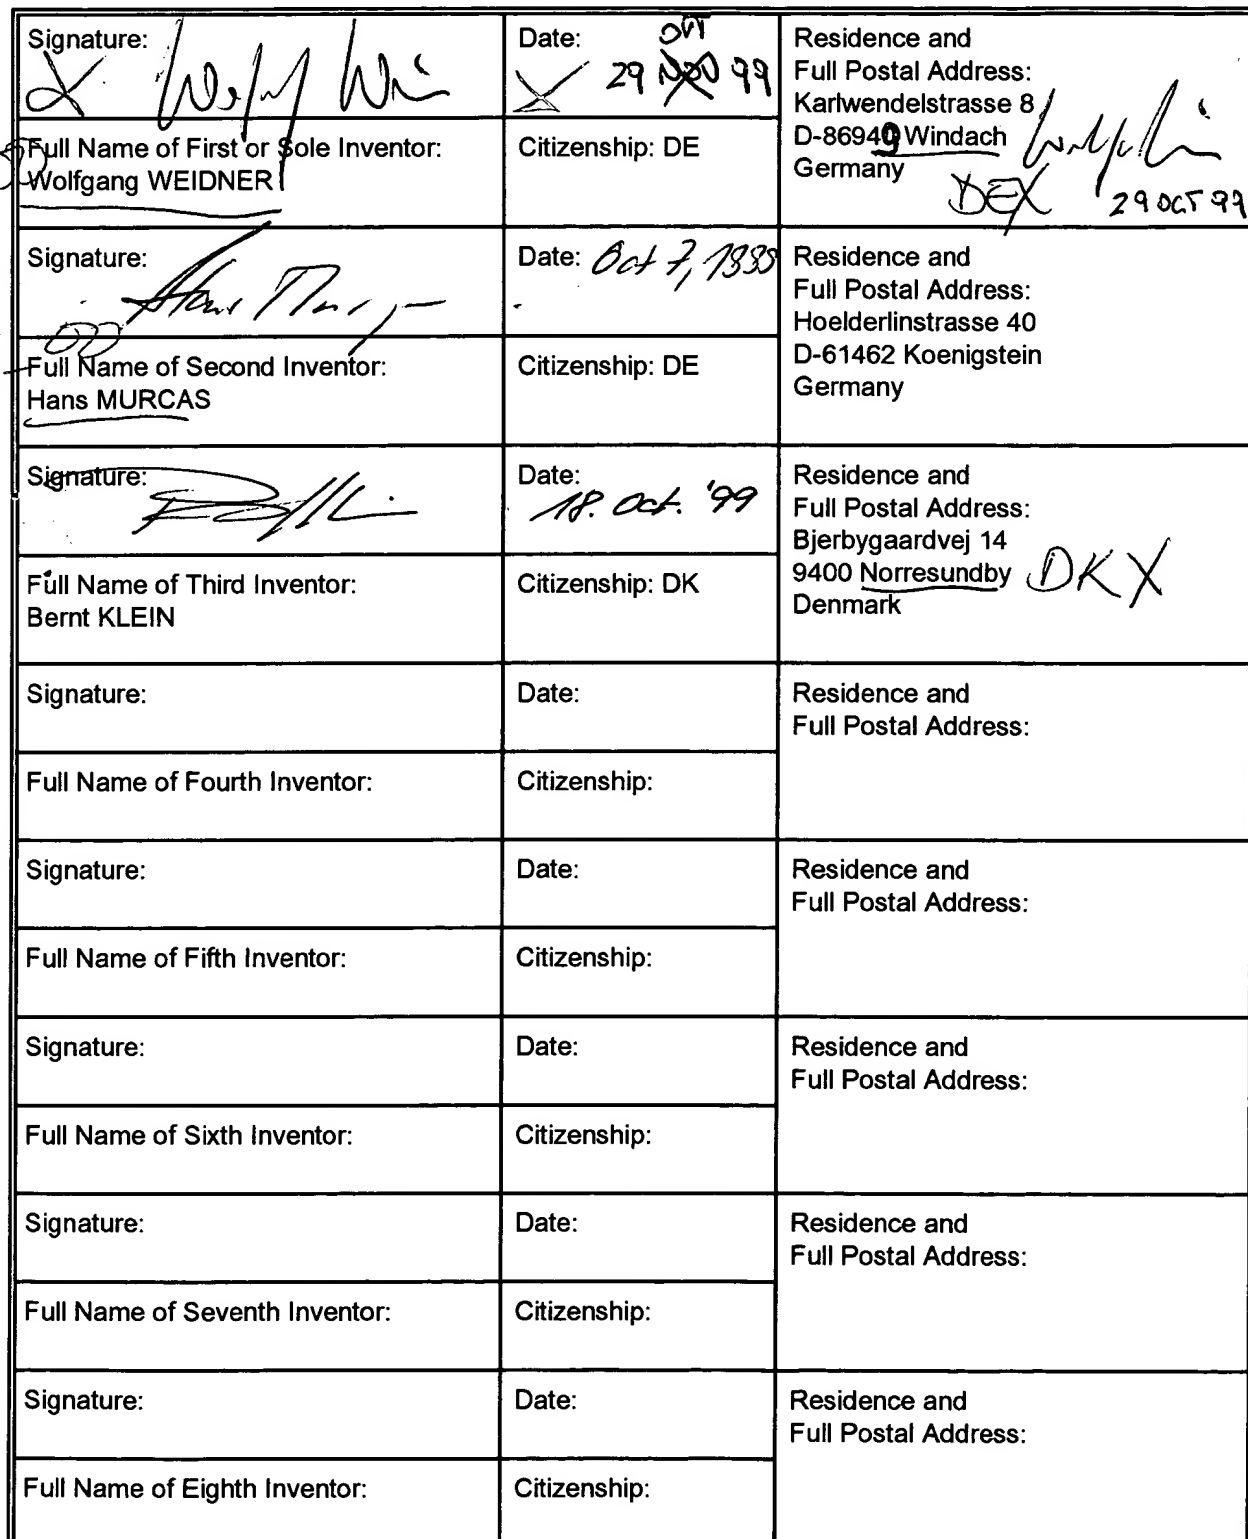 Signature:
Date: OCT
29 NOV 99
Residence and
Full Postal Address:
Karlwendelstrasse 8
D-86949 Windach
Germany
DEX 29 OCT 99
Full Name of First or Sole Inventor:
Wolfgang WEIDNER
Citizenship: DE
Signature:
Date: Oct 7, 1999
Residence and
Full Postal Address:
Hoelderlinstrasse 40
D-61462 Koenigstein
Germany
Full Name of Second Inventor:
Hans MURCAS
Citizenship: DE
Signature:
Date:
18. Oct. '99
Residence and
Full Postal Address:
Bjerbygaardvej 14
9400 Norresundby DKX
Denmark
Full Name of Third Inventor:
Bernt KLEIN
Citizenship: DK
Signature:
Date:
Residence and
Full Postal Address:
Full Name of Fourth Inventor:
Citizenship:
Signature:
Date:
Residence and
Full Postal Address:
Full Name of Fifth Inventor:
Citizenship:
Signature:
Date:
Residence and
Full Postal Address:
Full Name of Sixth Inventor:
Citizenship:
Signature:
Date:
Residence and
Full Postal Address:
Full Name of Seventh Inventor:
Citizenship:
Signature:
Date:
Residence and
Full Postal Address:
Full Name of Eighth Inventor:
Citizenship: